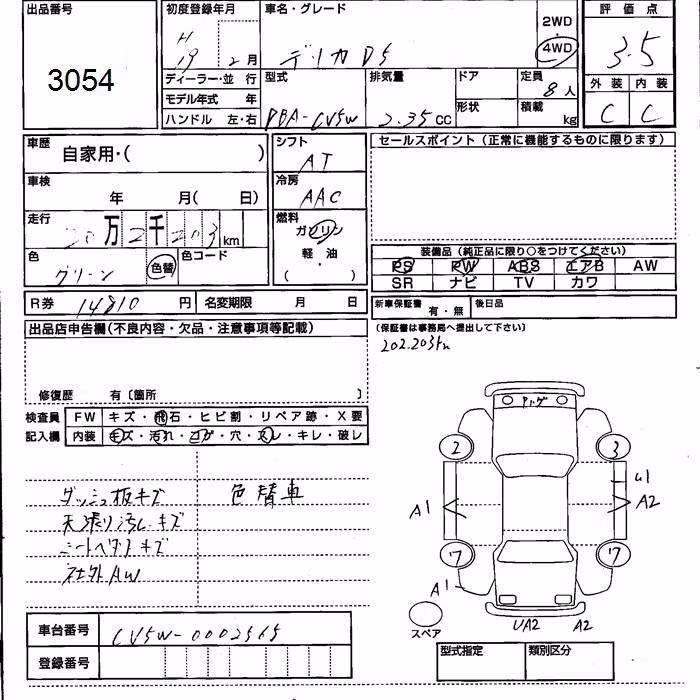 出品番号
3054
初度登録年月
H
19 2月
ディーラー・並 行
モデル年式 年
ハンドル 左・右
車名・グレード
デリカD5
2WD
4WD
型式
DBA-CV5W
排気量
2.35cc
ドア
形状
定員
8人
積載
kg
評価点
3.5
外装 内装
C C
車歴
自家用・( )
車検
年 月( 日)
走行
20万2千203km
色
グリーン
色替
色コード
シフト
AT
冷房
AAC
燃料
ガソリン
軽・油
( ・ )
セールスポイント (正常に機能するものに限ります)
装備品 (純正品に限り○をつけてください)
PS PW ABS エアB AW
SR ナビ TV カワ
R券 14810円
名変期限 月 日
新車保証書
有・無
後日品
(保証書は事務局へ提出して下さい)
202.203km
出品店申告欄 (不良内容・欠品・注意事項等記載)
修復歴 有〔箇所 〕
検査員
記入欄
FW キズ・飛石・ヒビ割・リペア跡・X要
内装 キズ・汚れ・コゲ・穴・スレ・キレ・破レ
ダッシュ板キズ
色替車
天張り汚れ キズ
シートヘタリ キズ
社外AW
2
3
A1
u1
A2
7
7
A1
スペア
UA2
A2
車台番号
CV5W-0002565
登録番号
型式指定
類別区分